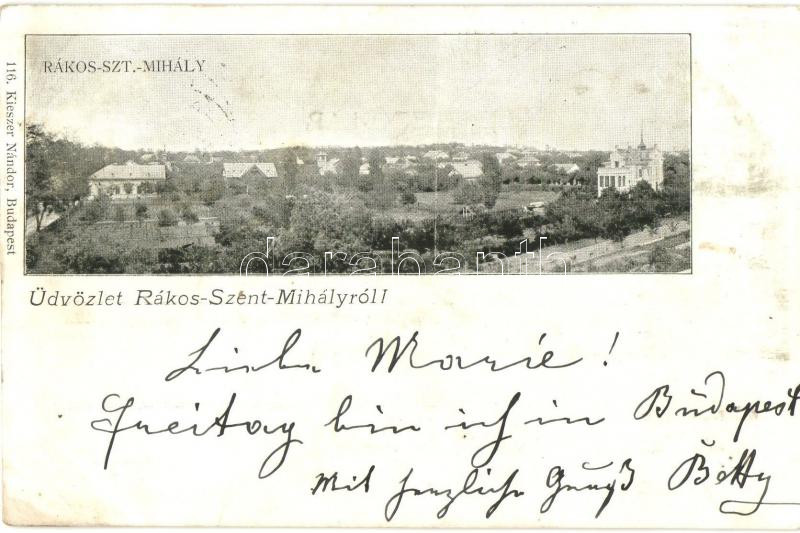 RÁKOS-SZT.-MIHÁLY
116. Kieszer Nándor, Budapest
darabanth
Üdvözlet Rákos-Szent-Mihályról!
Liebe Marie!
Freitag bin ich in Budapest
Mit herzliche Gruß Betty